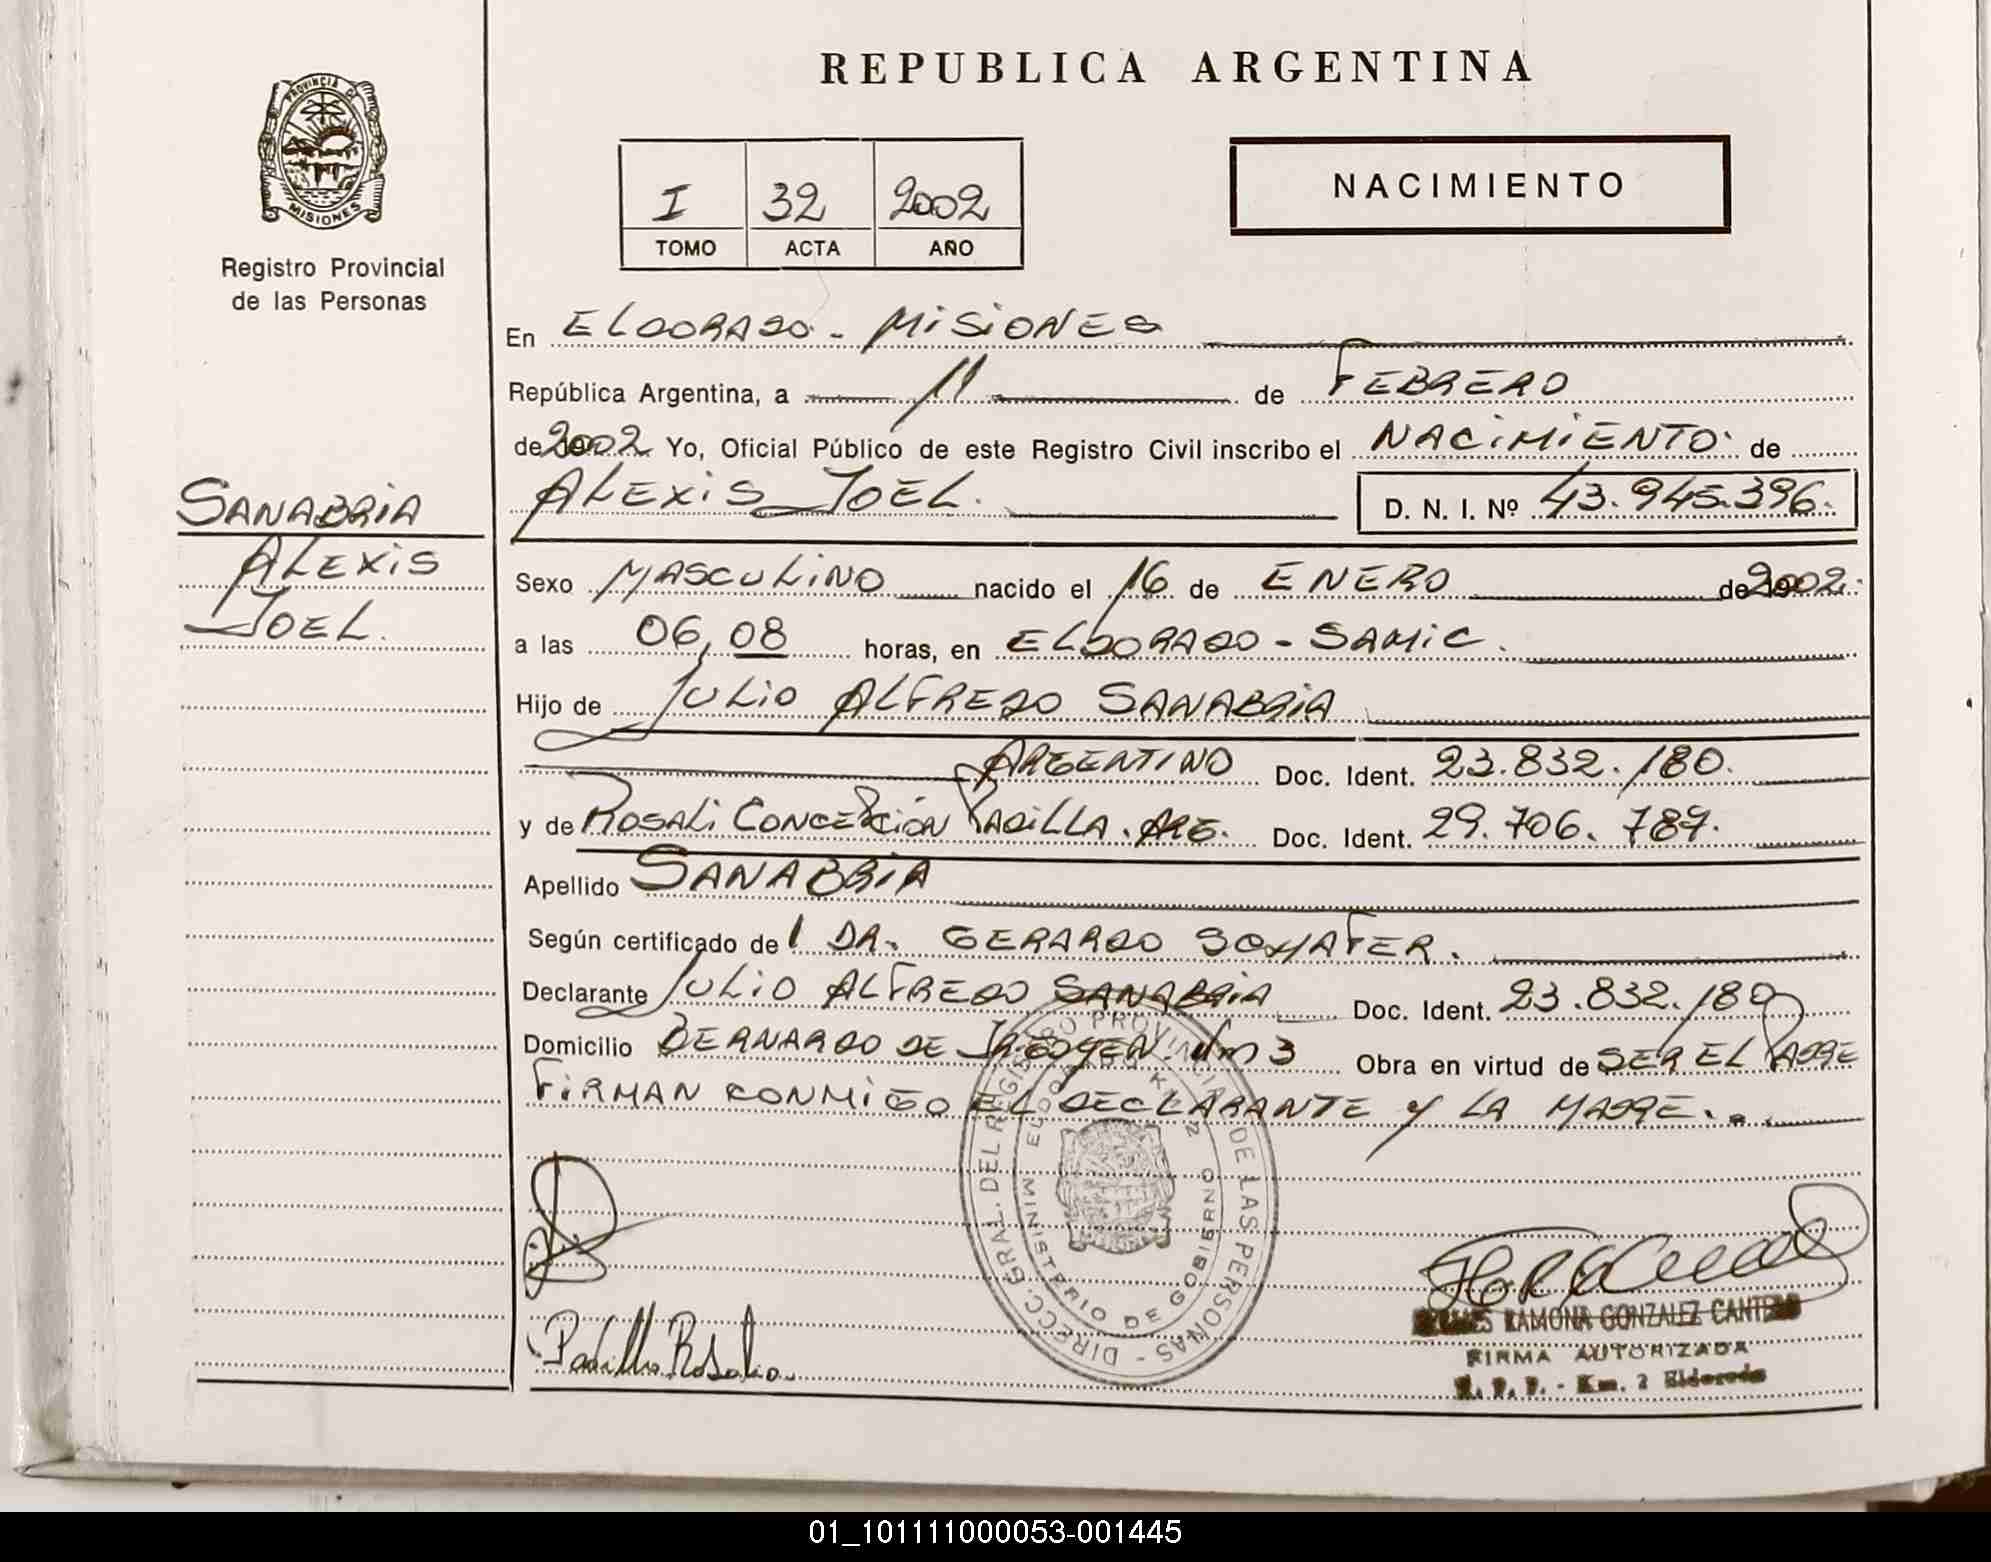 REPUBLICA ARGENTINA
PROVINCIA DE
MISIONES
Registro Provincial
de las Personas
I 32 2002
TOMO ACTA AÑO
NACIMIENTO
En ELDORADO - MISIONES
República Argentina, a 11 de FEBRERO
de 2002 Yo, Oficial Público de este Registro Civil inscribo el NACIMIENTO de
ALEXIS JOEL. D. N. I. Nº 43.945.396.
SANABRIA
ALEXIS
JOEL.
Sexo MASCULINO nacido el 16 de ENERO de 2002.
a las 06,08 horas, en ELDORADO - SAMIC.
Hijo de JULIO ALFREDO SANABRIA
ARGENTINO Doc. Ident. 23.832.180.
y de ROSALI CONCEPCIÓN PADILLA. ARG. Doc. Ident. 29.706.789.
Apellido SANABRIA
Según certificado del DR. GERARDO SCHAFER.
Declarante JULIO ALFREDO SANABRIA Doc. Ident. 23.832.180
Domicilio BERNARDO DE IRIGOYEN. Km 3 Obra en virtud de SER EL PADRE
FIRMAN CONMIGO EL DECLARANTE Y LA MADRE.
DIRECC. GRAL. DEL REGISTRO PROVINCIAL DE LAS PERSONAS -
MINISTERIO DE GOBIERNO
ELDORADO K 2
Padilla Rosali
RAMONA GONZALEZ CANTERO
FIRMA AUTORIZADA
R. P. P. - Km. 2 Eldorado
01_101111000053-001445